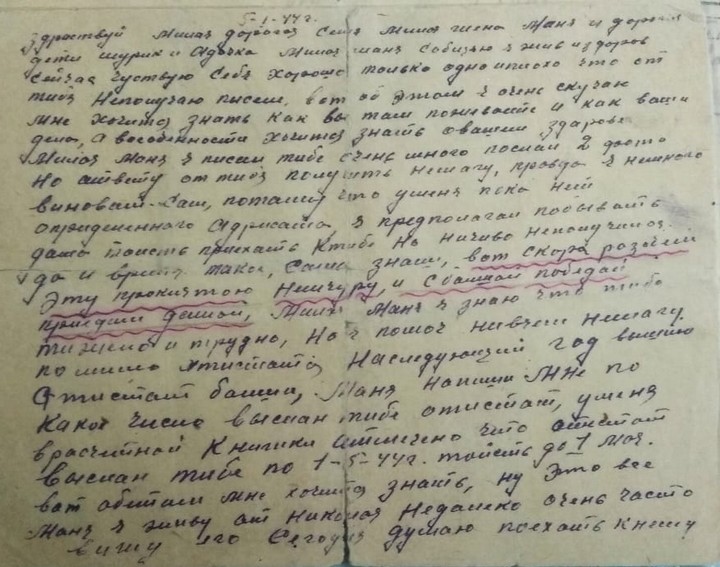 5-1-44г.
Здраствуй милая дорогая семя милая жена Маня и дорогия
дети Шурик и Адочка Милая маня Сабизчю я жив издоров
сейчас чуствую себя хорошо только одноиплохо что от
тибя Неполучаю писем, вот об этом я очень скучаю
мне хочится знать как вы там поживаите и как ваши
дела, А вособенности хочится знать овашем здорове
Милая Маня я писем тибе очень много послал
Но ответу от тибя получить немагу, правда я немного
виноват Сам, потамучто уменя пока нет
определенного Адрисата я предполагал побывать
дома тоисть приехать Ктибе Но ничиво неполучилос
да и время такое, Сама знаш, вот скора разобём
Эту проклитою Немчуру, и Сбольшой победай
приедим домой, Милая Маня я знаю что тибе
тижело и трудно, Но я помоч ничем немагу
помимо Атистата Наследующий год вышлю
Атистат больши, Маня напиши мне по
Какое число выслан тибе атистат, уменя
врасчетной Книжки атмечено что атистат
выслан тибе по 1-5-44г. тоисть до 1 мая.
вот обэтом мне хочится знать, ну это все
Маня я живу от Николая Недалеко очень часто
вижу его Сегодня думаю поехать книму